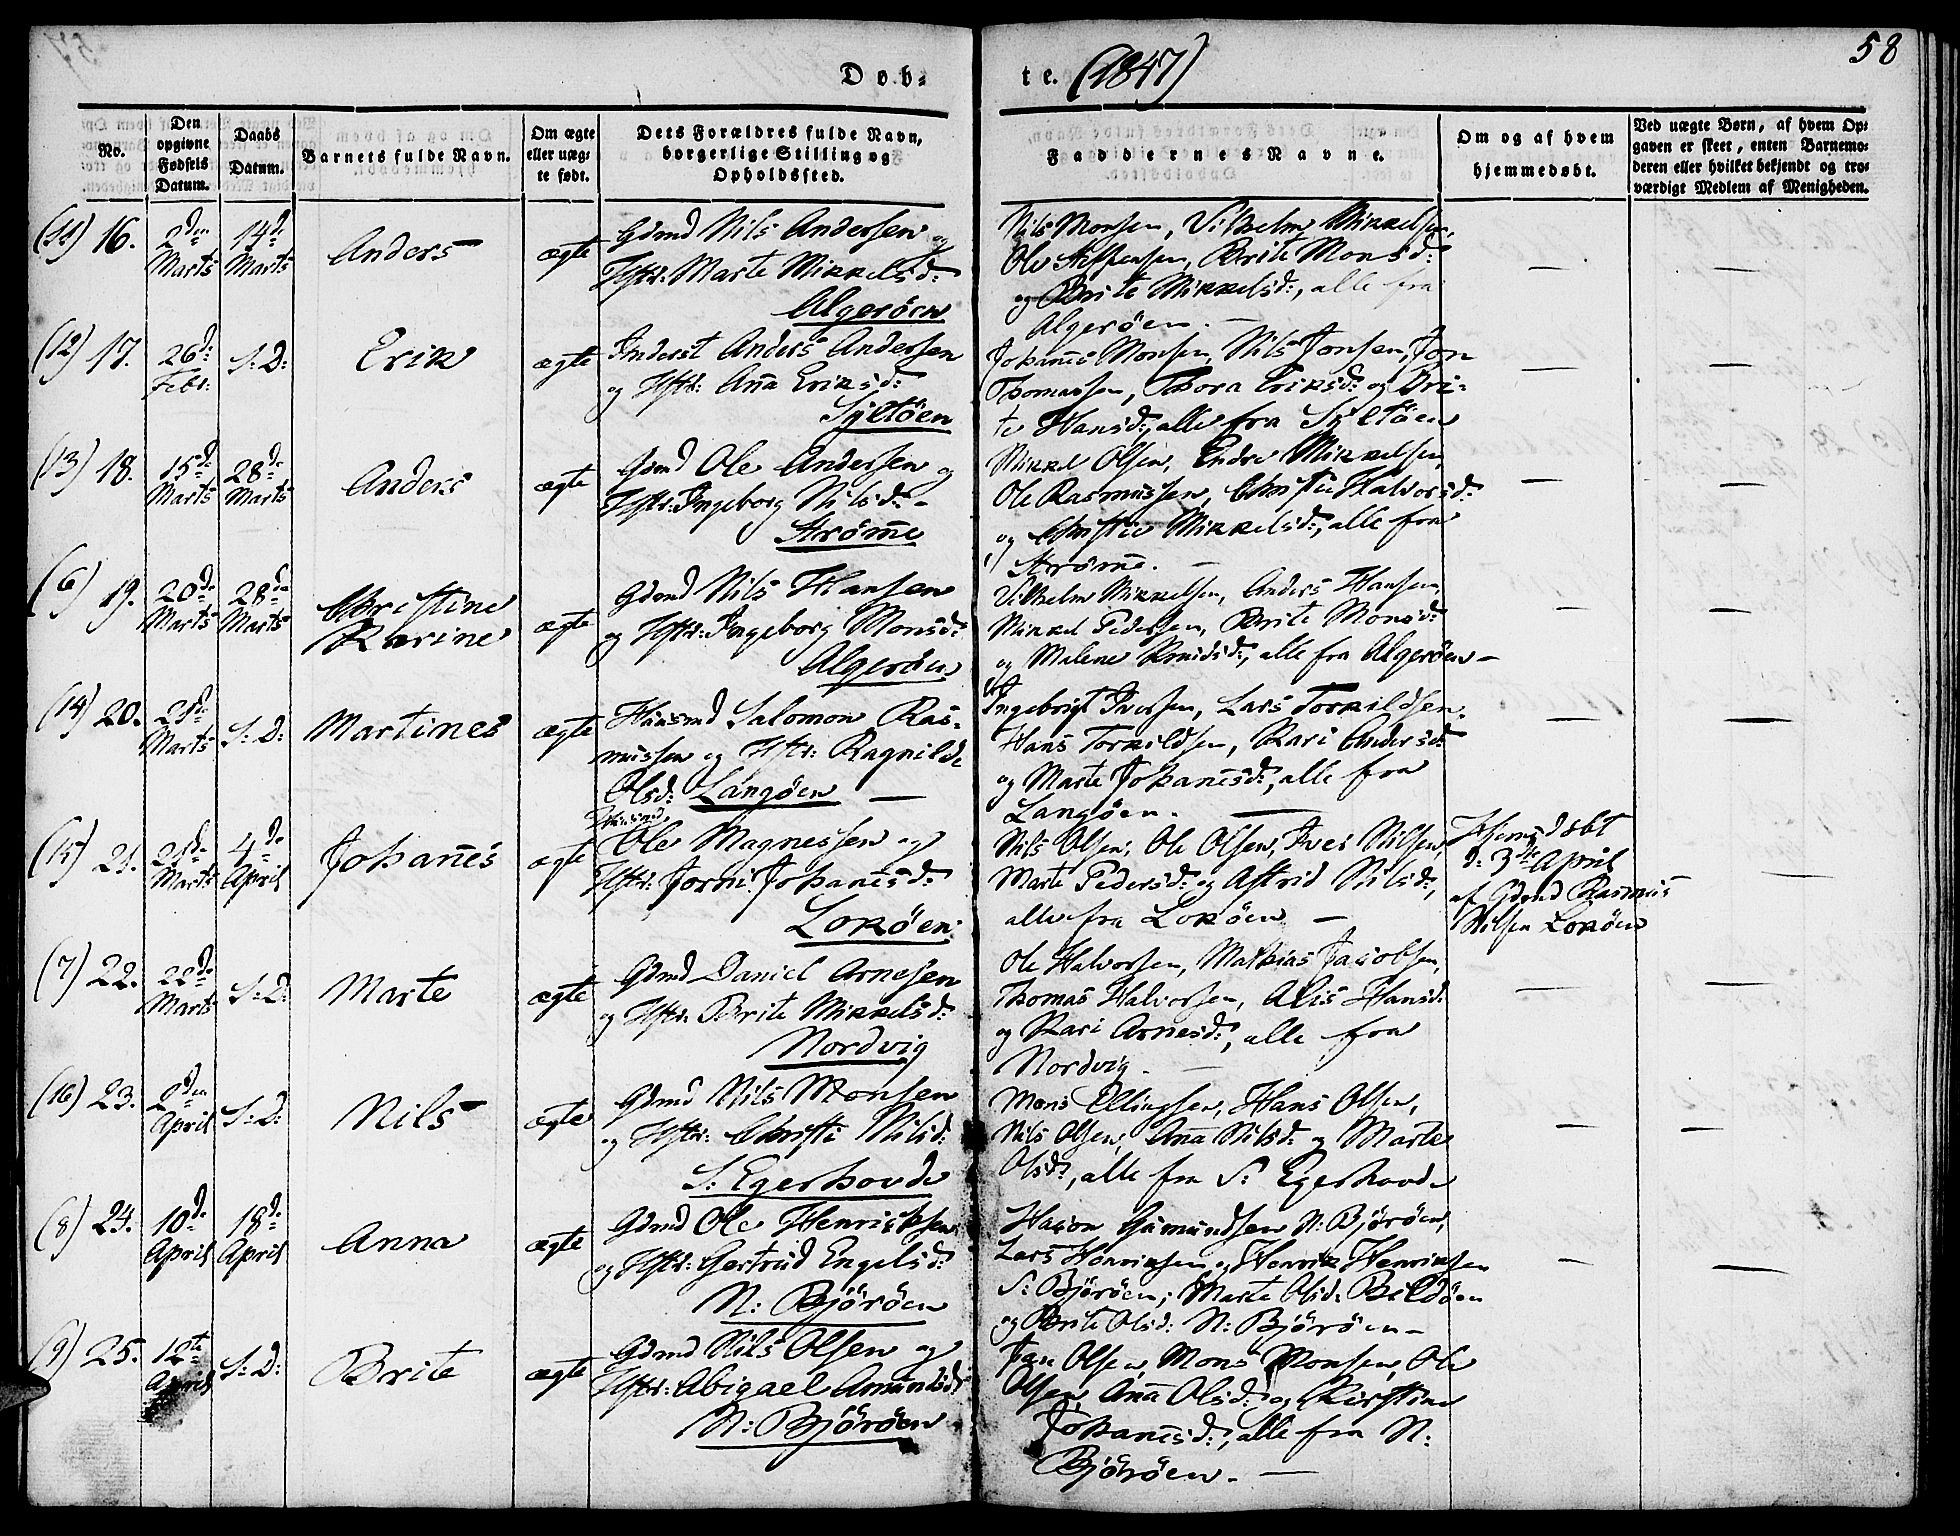 58
Døb-
te. (1847)
No.
Den opgivne Fødsels Datum.
Daabs Datum.
Barnets fulde Navn.
Om ægte eller uægte født.
Dets Forældres fulde Navn, borgerlige Stilling og Opholdssted.
Faddernes Navne.
Om og af hvem hjemmedøbt.
Ved uægte Børn, af hvem Opgaven er skeet, enten Barnemoderen eller hvilket bekjendt og troværdigt Medlem af Menigheden.
(11) 16.
2den Marts
14de Marts
Anders
ægte
Gdmd Nils Andersen og
Hstr: Marte Mikkelsd:
Algerøen
Nils Monsen, Vilhelm Mikkelsen,
Ole Steffensen, Brite Monsd:
og Brite Mikkelsd:, alle fra
Algerøen. —
(12) 17.
26d: Febr:
S: D:
Erik
ægte
Inderst Anders Andersen
og Hstr: Anna Eriksd:
Syltøen
Johannes Monsen, Nils Jonsen, Jon
Thomassen, Thora Eriksd: og Bri-
te Hansd:, alle fra Syltøen
(13) 18.
15de Marts
28de Marts
Anders
ægte
Gdmd Ole Andersen og
Hstr: Ingeborg Nilsd: -
Strømme
Mikkel Olsen, Endre Mikkelsen,
Ole Rasmussen, Christie Halvorsd:
og Christie Mikkelsd:, alle fra
Strømme. —
(6) 19.
20de Marts
28de Marts
Christine
Karine
ægte
Gdmd Nils Hansen
og Hstr: Ingeborg Monsd:
Algerøen
Vilhelm Mikkelsen, Anders Hansen,
Mikkel Pedersen, Brite Monsd:
og Malene Knudsd:, alle fra Algerøen —
(14) 20.
21de Marts
S: D:
Martines
ægte
Huusmd Salomon Ras-
mussen og Hstr: Ragnilde
Olsd: Langøen —
Ingebrigt Iversen, Lars Torkildsen,
Hans Torkildsen, Kari Andersd:
og Marte Johannesd:, alle fra
Langøen. —
(15) 21.
21de Marts
4de April
Johannes
ægte
Huusmd
Ole Magnessen og
Hstr: Jorni Johannesd:
Lokøen
Nils Olsen, Ole Olsen, Iver Nilsen,
Marte Pedersd: og Astrid Nilsd:,
alle fra Lokøen —
Hjemmedøbt
d: 3die April
af Gdmd Rasmus
Nilsen Lokøen
(7) 22.
22de Marts
S: D:
Marte
ægte
Gdmd Daniel Arnesen
og Hstr: Brite Mikkelsd:
Nordvig
Ole Halvorsen, Mathias Jacobsen,
Thomas Halvorsen, Alis Hansd:
og Kari Arnesd:, alle fra
Nordvig. —
(16) 23.
2den April
S: D:
Nils
ægte
Gdmd Nils Monsen
og Hstr: Christi Nilsd:
S: Egerhovde
Mons Ellingsen, Hans Olsen,
Nils Olsen, Anna Nilsd: og Marte
Olsd:, alle fra S: Egerhovde
(8) 24.
10de April
18de April
Anna
ægte
Gdmd Ole Henriksen
og Hstr: Gertrud Engelsd:
N: Bjørøen
Hacon Gumundsen N: Bjørøen,
Lars Henriksen og Henrik Henriksen
S: Bjørøen; Marte Olsd: Bildøen
og Brite Olsd: N: Bjørøen —
(9) 25.
12te April
S: D:
Brite
ægte
Gdmd Nils Olsen og
Hstr: Abigael Amundsd:
N: Bjørøen
Jan Olsen, Mons Monsen, Ole
Olsen, Anna Olsd: og Kirstine
Johannesd:, alle fra N:
Bjørøen. —